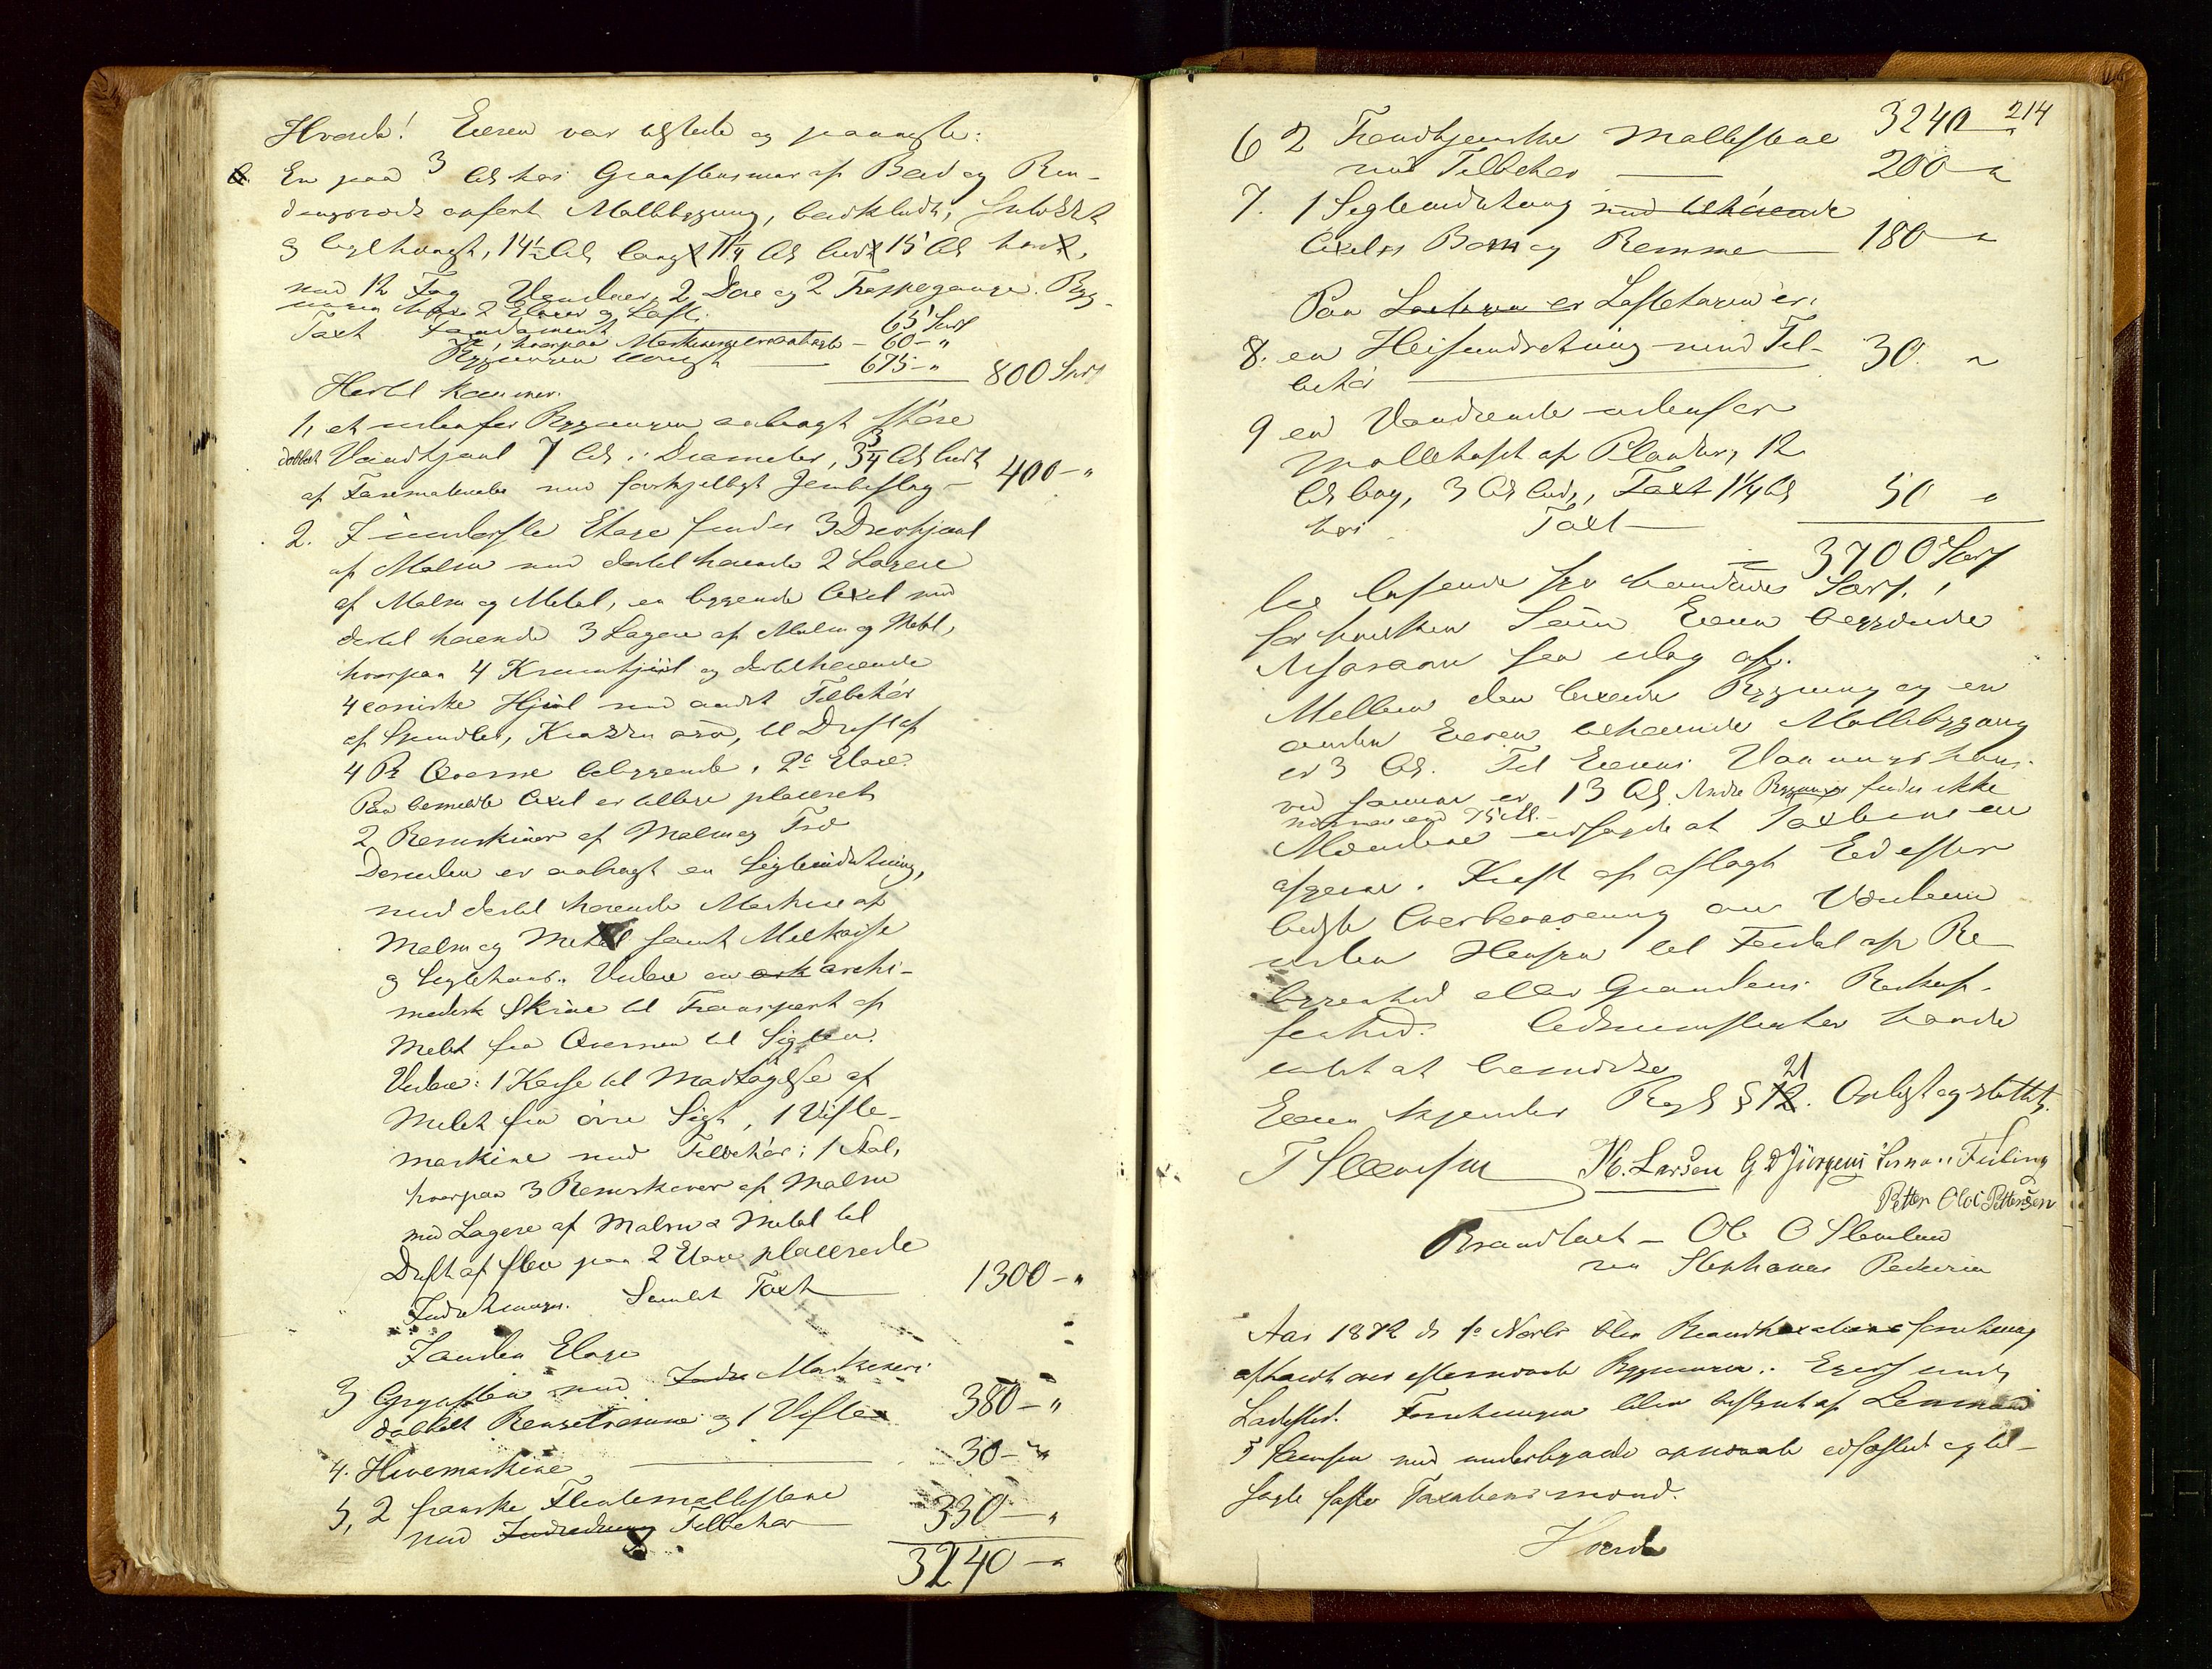 Hvorda! Eieren var tilstede og paaviste:
a. En paa 3 Al. høi Graastensmur af Bord og Bin-
dingsværk opført Møllebygning, bordklædt, hvidtet
og teglhængt, 14½ Al. lang 11¼ Al. bred 15 Al. høi,
med 12 Fag Vinduer, 2 Døre og 2 Trappegange. Byg-
ningen har 2 Etager og Loft.
Taxt Fundament 65 Spd
hvorpaa Maskineriet er anbragt – 60 – "
Bygningen taxeret — 675 – " 800 Spd
Hertil kommer:
1, et udenfor Bygningen anbragt større
dobbelt Vandhjul 7 Al. i Diameter, 3¾ Al. bredt
af Furematerialier med forskjelligt Jernbeslag – 400 – "
2. I underste Etage findes 3 Drevhjul
af Malm med dertil hørende 2 Lagere
af Malm og Metal, en liggende Axel med
dertil hørende 3 Lagere af Malm og Metal,
hvorpaa 4 Kronhjul og dertilhørende
4 coniske Hjul med andet Tilbehør
af Spindler, Kradsere osv, til Drift af
4 Pr Qværne beliggende i 2den Etage.
Paa bemeldte Axel er tillige placeret
2 Remskiver af Malm og Træ
Desuden er anbragt en Sigteindretning,
med dertil hørende Maskine af
Malm og Metal samt Melkasse
og Sigtekasse. Videre en ark archi-
medisk Skrue til Transport af
Melet fra Qværnen til Sigten.
Videre: 1 Kasse til Modtagelse af
Melet fra øvre Sigt, 1 Vifte-
maskine med Tilbehør; 1 Axel,
hvorpaa 3 Remskiver af Malm
med Lagere af Malm & Metal til
Drift af flere paa 2 Etage placerede
Indretninger. Samlet Taxt — 1300 – "
I anden Etage
3 Grynsten med Indre Maskineri
dobbelt Rensetromme og 1 Vifte 380 – "
4. Hivemaskine — 30 – "
5, 2 franske Flintemøllestene
med Indredning Tilbehør — 330 – "
3240 – "
214
3240 "
6 2 Trondhjemske Møllestene
med Tilbehør — 200 – "
7. 1 Sigteindretning med tilhørende
Axeler Bom og Remmer — 180 – "
Paa Lasteren er Loftetagen er:
8. en Heiseindretning med Til-
behør — 30 "
9 en Vandrende udenfor
Møllehuset af Planker, 12
Al. lang, 3 Al. bred, Taxt 1¼ Al.
høi Taxt — 50 "
= 3700 Spd
tre tusende syv hundrede Spd.!
for hvilken Sum Eieren begjærede
Assurance for udlag af.
Mellem den taxerede Bygning og en
anden Eieren tilhørende Møllebygning
er 3 Al. Til Eierens Vaaningshus
ved Søen er 13 Al. Andre Bygninger findes ikke
nærmere end 75 Al.
Mændene udsagde at Taxterne er
afgivne i Kraft af aflagt Ed efter
bedste Overbevisning om Værdien
uden Hensyn til Fordel af Be-
liggenhed eller Grundens Beskaf-
fenhed. Lednsmanden havde
intet at bemærke
Eieren kjender Regl § 12 21. Oplæst og sluttet.
T Steensen K. Larsen G D Jürgens Herman Füling
Petter Olai Pettersen
Brandtaxt – Ole O Stenlund
Stephanus Pedersen
Aar 1872 d 1e Novbr blev Brandtaxationsforretning
afholdt over efternævnte Bygninger i Egersunds
Ladested. Forretningen blev bestyret af Lensmand
T Steensen med underskrevne opnævnte edfæstede og til-
sagte faste Taxationsmænd.
Hvorda